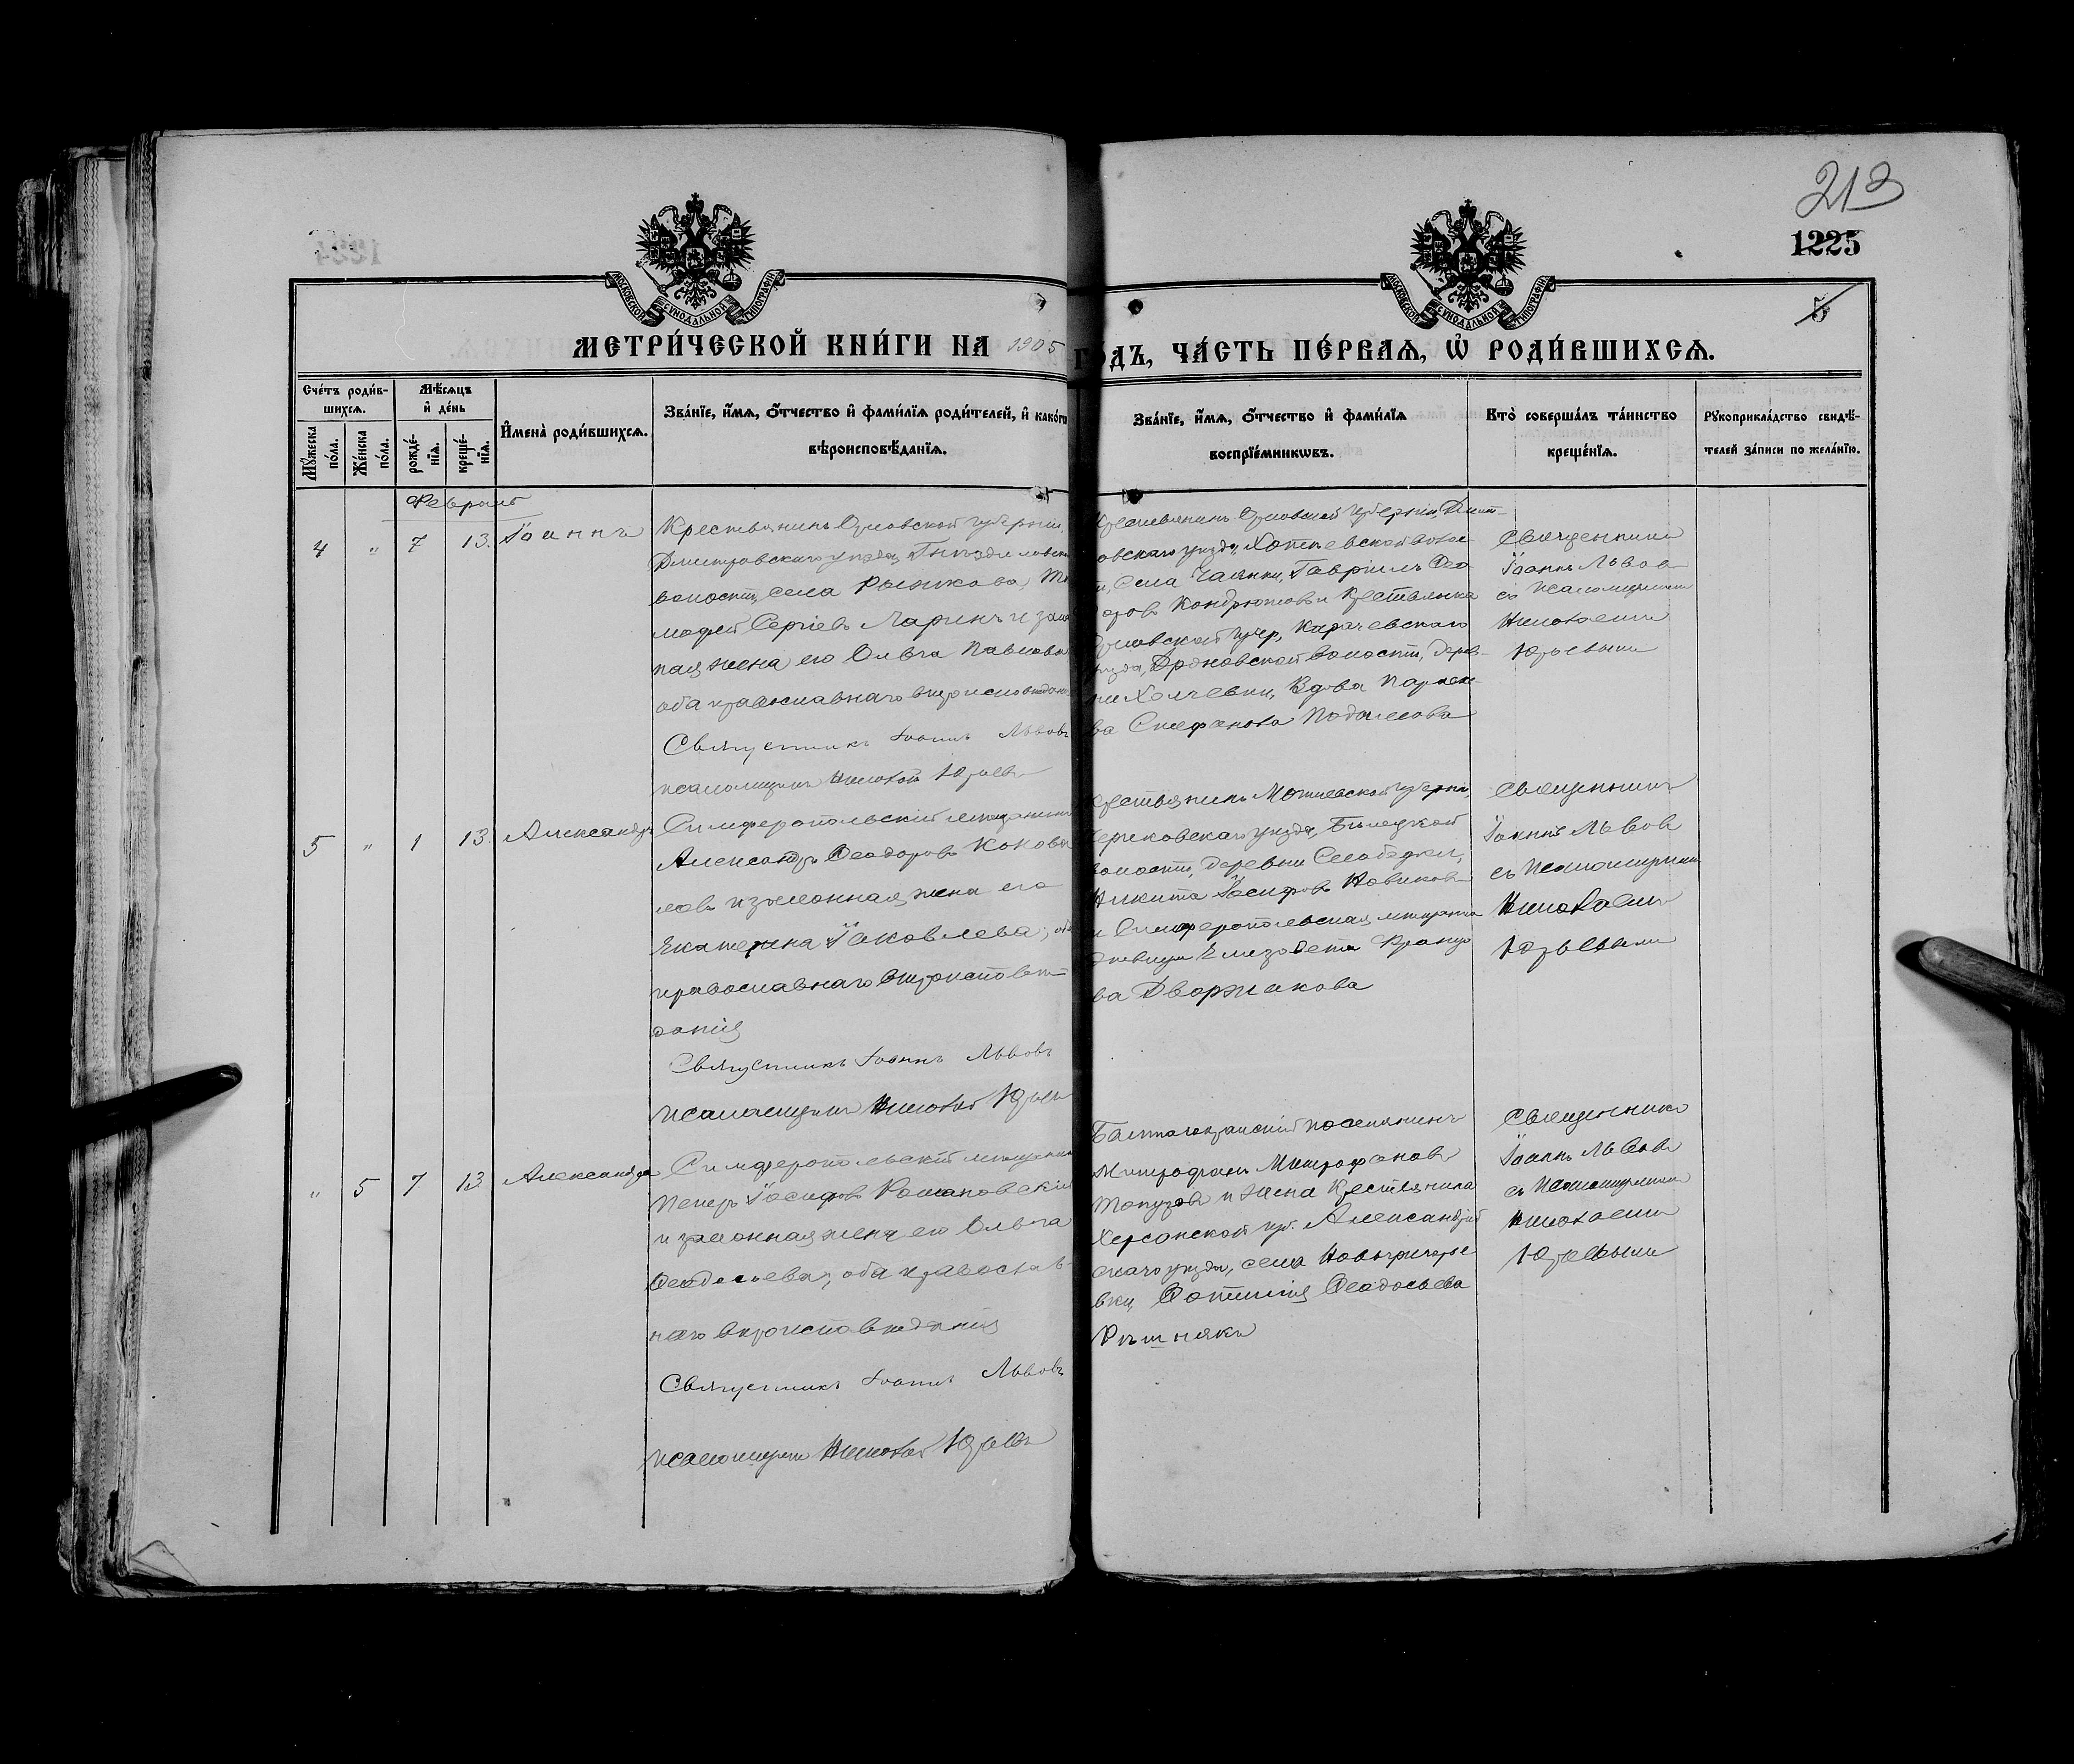 213
1225
5
МОСКОВСКОЙ СѴНОДАЛЬНОЙ ТИПОГРАФІИ
МОСКОВСКОЙ СѴНОДАЛЬНОЙ ТИПОГРАФІИ
МЕТРИ́ЧЕСКОЙ КНИ́ГИ НА 1905 ГО́ДЪ, ЧА́СТЬ ПЕ́РВАѦ, Ѽ РОДИ́ВШИХСѦ.
Сче́тъ роди́в-
шихсѧ.
Мꙋ́жеска
по́ла.
Же́нска
по́ла.
Мѣ́сѧцъ
и҆ де́нь
рожде́-
нїѧ.
креще́-
нїѧ.
И҆мена̀ роди́вшихсѧ.
Зва́нїе, и҆́мѧ, ѻ҆́тчество и҆ фами́лїѧ роди́телей, и҆ како́гѡ
вѣроисповѣ́данїѧ.
Зва́нїе, и҆́мѧ, ѻ҆́тчество и҆ фами́лїѧ
воспрїе́мникѡвъ.
Кто̀ соверша́лъ та́инство
креще́нїѧ.
Рꙋкоприкла́дство свидѣ́-
телей за́писи по жела́нїю.
Февраль
4 " 7 13. Іоаннъ
Крестьянинъ Орловской губерніи
Дмитровскаго уѣзда,
волости, села Рыжкова, Ти
мофей Сергіевъ Ларинъ и закон
ная жена его Ольга Павлова
оба православнаго вѣроисповѣдан.
Священникъ Іоаннъ Львовъ
псаломщикъ Николай Юрьевъ
Крестьянинъ Орловской губерніи, Дмит-
ровскаго уѣзда, волос
ти, села Гавріилъ Ѳео
доровъ Кондрюковъ и крестьянка
Орловской губер, Карачевскаго
уѣзда, Дроновской волости, дерев-
ни вдова Параске
ва Стефанова
Священникъ
Іоаннъ Львовъ
съ псаломщикомъ
Николаемъ
Юрьевымъ
5 " 1 13. Александръ
Симферопольскій мѣщанинъ
Александръ Ѳеодоровъ Конова
ловъ и законная жена его
Екатерина Іаковлева; оба
православнаго вѣроисповѣ-
данія
Священникъ Іоаннъ Львовъ
псаломщикъ Николай Юрьевъ
Крестьянинъ Могилевской губерніи,
Чериковскаго уѣзда,
волости, деревни Слободки,
Никита Іосифовъ Новиковъ
и Симферопольская мѣщанка
дѣвица Елизавета Францо
ва Дворжакова
Священникъ
Іоаннъ Львовъ
съ псаломщикомъ
Николаемъ
Юрьевымъ
" 5 7 13 Александра
Симферопольскій мѣщанинъ
Петръ Іосифовъ Романовскій
и законная жена его Ольга
Ѳеодосьева; оба православ-
наго вѣроисповѣданія
Священникъ Іоаннъ Львовъ
псаломщикъ Николай Юрьевъ
поселянинъ
Митрофанъ Митрофановъ
Топузовъ и жена крестьянина
Херсонской губ. Александрій
скаго уѣзда, села
вки, Фотинія Ѳеодосьева
Рѣшнякъ
Священникъ
Іоаннъ Львовъ
съ псаломщикомъ
Николаемъ
Юрьевымъ